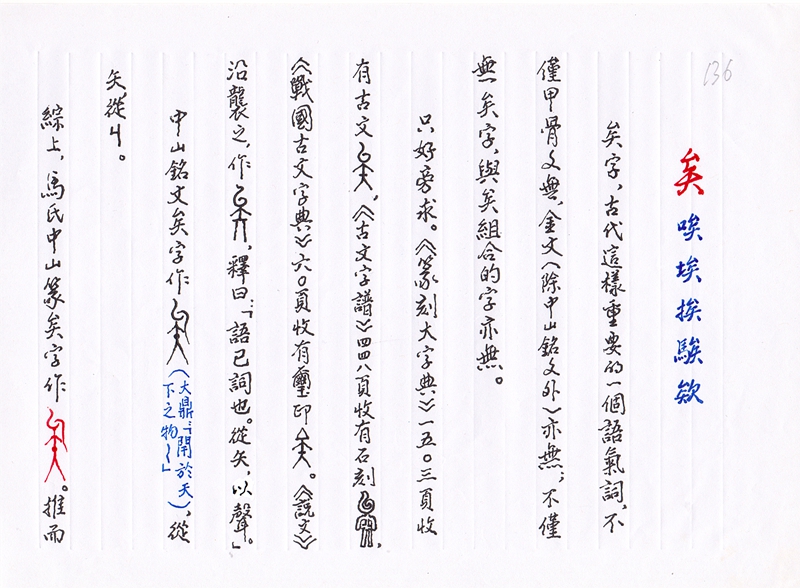 136
矣 唉 埃 挨 騃 欸
矣字，古代這樣重要的一個語氣詞，不
僅甲骨文無，金文（除中山銘文外）亦無；不僅
無矣字，與矣組合的字亦無。
只好旁求。《篆刻大字典》一五〇三頁收
有古文，《古文字譜》四四八頁收有石刻，
《戰國古文字典》六〇頁收有璽印。《說文》
沿襲之，作，釋曰：「語已詞也。從矢，以聲。」
中山銘文矣字作（大鼎：「閈於天下之物」），從
矢，從丩。
綜上，馬氏中山篆矣字作。推而